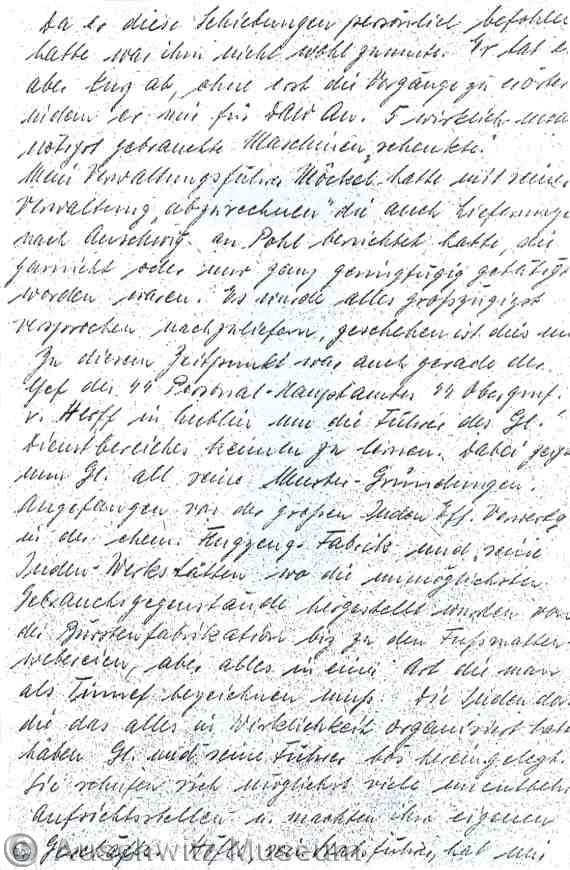 Da er diese Schiebungen persönlich befohlen
hatte war ihm nicht wohl zumute. Er tat es
aber kurz ab, ohne erst die Vorgänge zu erörter
indem er mir für DAW Au. 5 wirklich
nötigst gebrauchte Maschinen „schenkte".
Mein Verwaltungsführer Möckel hatte mit seiner
Verwaltung „abzurechnen" die auch Lieferunge
nach Auschwitz an Pohl berichtet hatte, die
garnicht oder nur ganz geringfügig getätigt
worden waren. Es wurde alles großzügigst
versprochen nachzuliefern, geschehen ist dies
Zu diesem Zeitpunkt war auch gerade der
Chef des SS Personal-Hauptamtes SS Obergruf.
v. Herff in Lublin um die Führer des Gl.
Dienstbereiches kennen zu lernen. Dabei
nun Gl. all seine Muster-Gründungen.
Angefangen von der großen Juden Eff. Verwertg
in der ehem. Flugzeug-Fabrik und seine
Juden-Werkstätten wo die unmöglichsten
Gebrauchsgegenstände hergestellt wurden von
der Bürstenfabrikation bis zu den Fußmatten-
webereien, aber alles in einer Art die man
als Tinnef bezeichnen muß. Die Juden
die das alles in Wirklichkeit organisiert hatt
haben Gl. und seine Führer bös hereingelegt.
Sie schufen sich möglichst viele unentbehr
Aufsichtsstellen u. machten ihre eigenen
Geschäfte. Höfle, sein Stabsführer, hat mir
© Auschwitz Museum